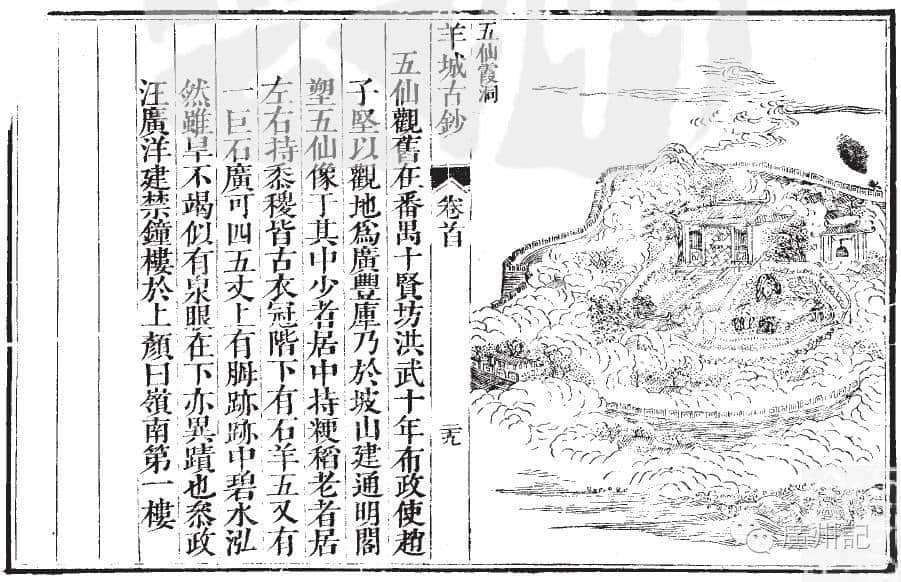 五仙霞洞
羊城古鈔
卷首
五仙觀舊在番禺十賢坊洪武十年布政使趙
子堅以觀地爲廣豐庫乃於坡山建通明閣
塑五仙像于其中少者居中持粳稻老者居
左右持黍稷皆古衣冠階下有石羊五又有
一巨石廣可四五丈上有胟跡跡中碧水泓
然雖旱不竭似有泉眼在下亦異蹟也叅政
汪廣洋建禁鐘樓於上顏曰嶺南第一樓
廣州記